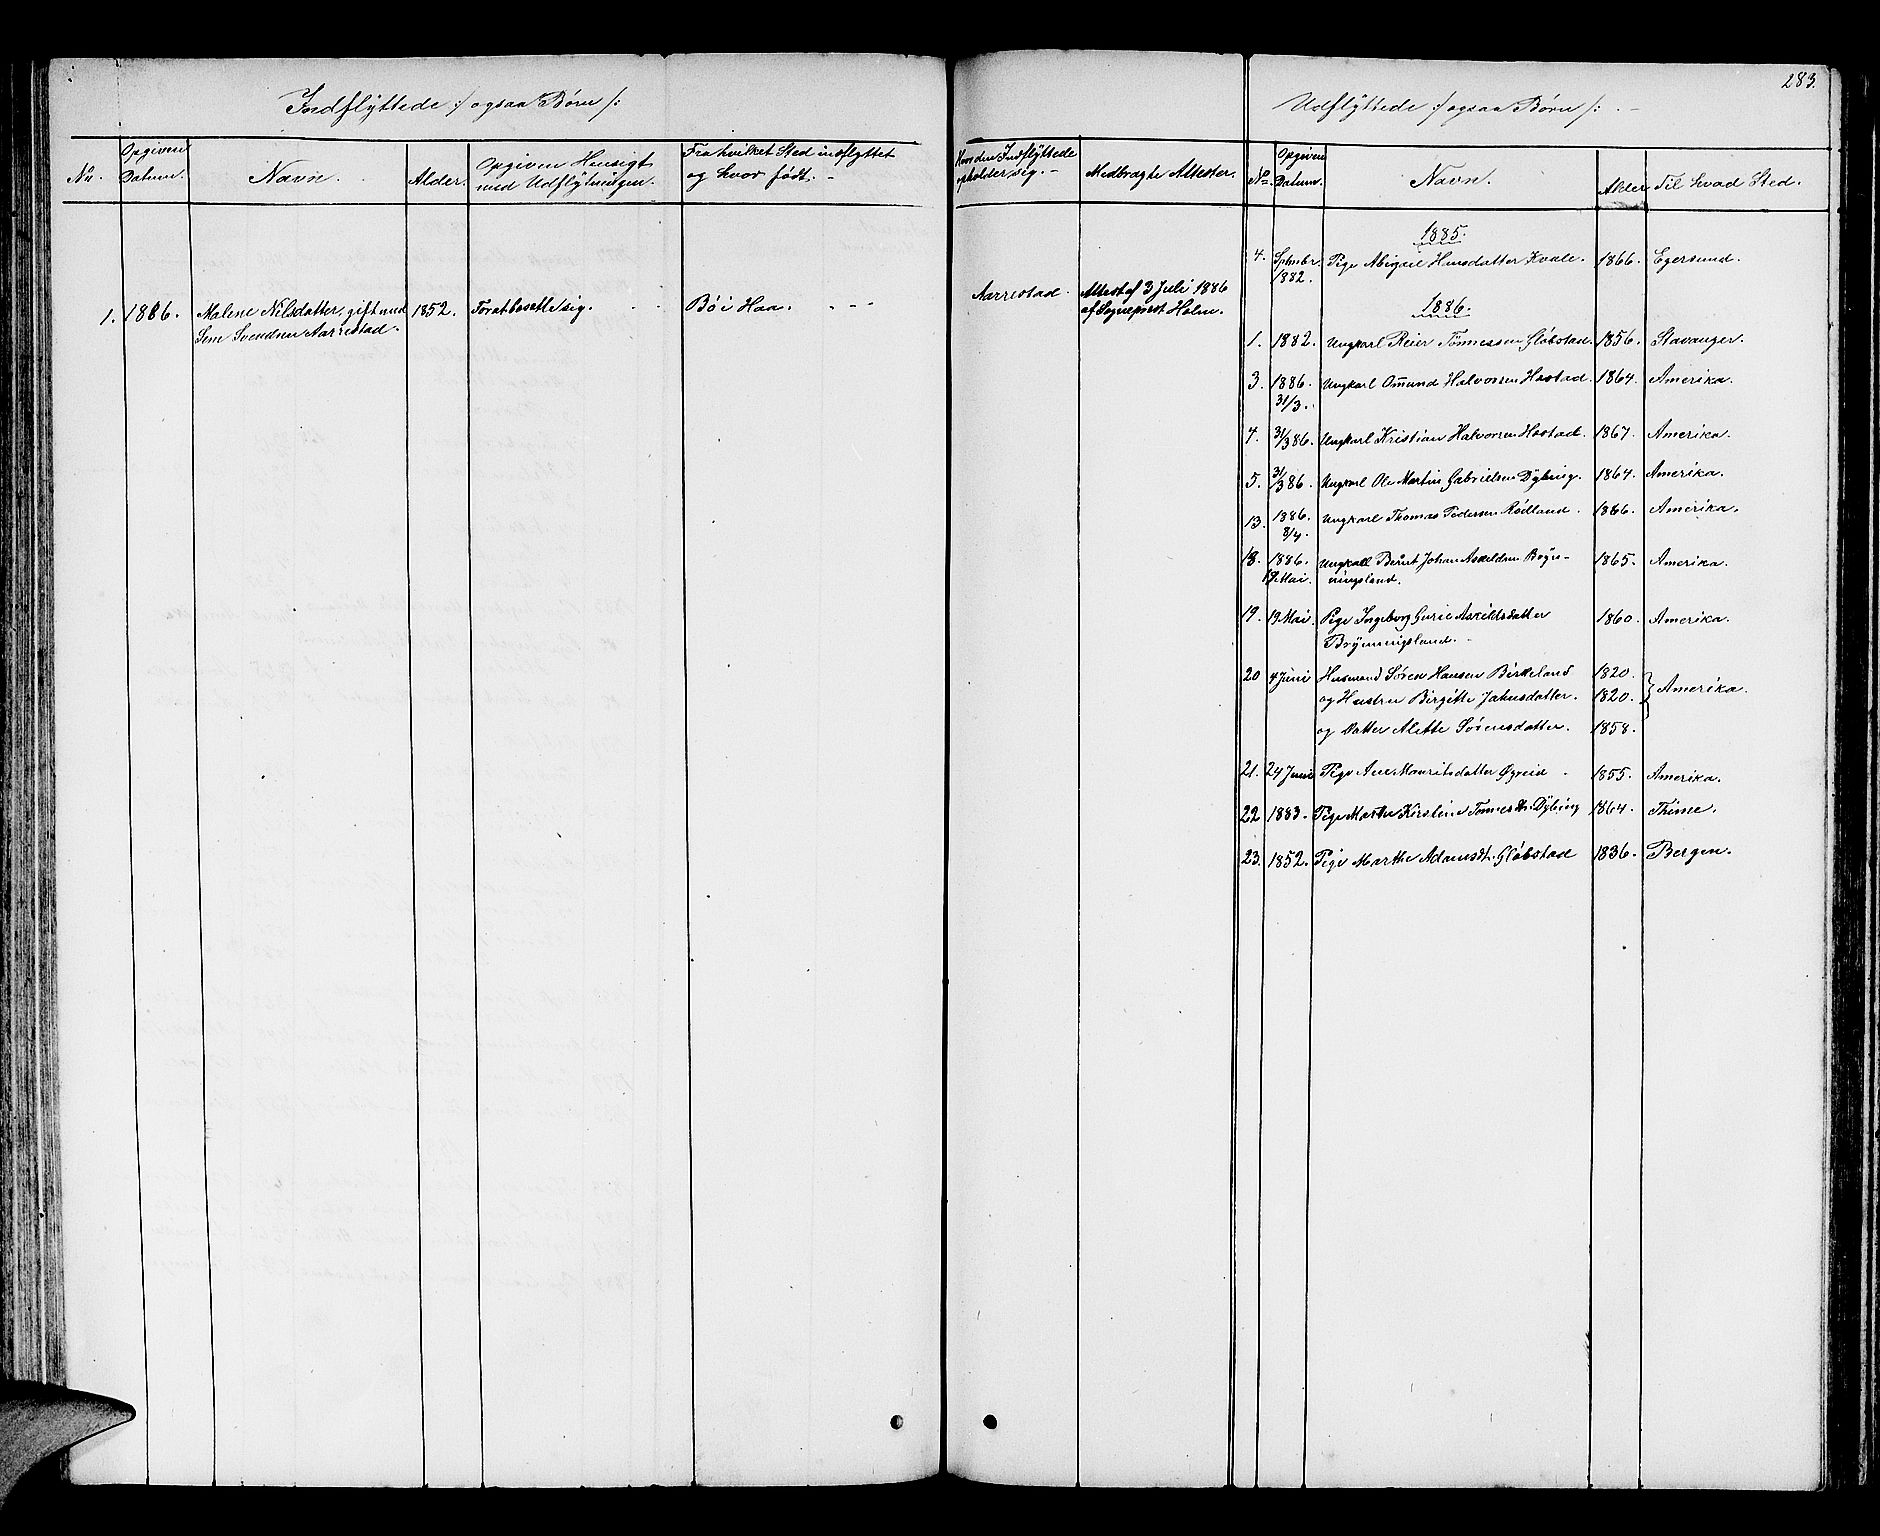 283.
Indflyttede :/ ogsaa Børn /:
Nr.
Opgiven Datum.
Navn.
Alder.
Opgiven Hensigt med Udflytningen.
Fra hvilket Sted indflyttet og hvor født.
1. 1886. Malene Nilsdatter, gift med 1852. For at bosætte sig. Bø i Haa.
Svendsen Aarrestad.
Udflyttede :/ ogsaa Børn /:
Hvor den Indflyttede opholder sig.
Medbragte Attester.
No.
Opgiven Datum.
Navn.
Alder
Til hvad Sted.
Aarrestad. Attest af 3 Juli 1886
af Sognepræst Holm.
1885.
4. Sptmbr. 1882. Pige Abigael Hansdatter Kvale. 1866. Egersund.
1886.
1. 1882. Ungkarl Reier Tønnessen Gløbstad. 1856. Stavanger.
3. 1886. 31/3. Ungkarl Omund Halvorsen Hostad. 1864. Amerika.
4. 31/3 86. Ungkarl Kristian Halvorsen Hostad. 1867. Amerika.
5. 31/3 86. Ungkarl Ole Martin Gabrielsen Dybing. 1864. Amerika.
13. 1886. 8/4. Ungkarl Thomas Pedersen Rødland. 1866. Amerika.
18. 1886. 19 Mai. Ungkarl Bernt Johan Askeldsen Bryn- 1865. Amerika.
ningsland.
19. 19 Mai. Pige Ingeborg Gurie Askeldsdatter 1860. Amerika.
Brynningsland.
20 4 Juni Husmand Søren Hansen Birkeland 1820.
og Hustru Birgitte Jahnsdatter. 1820. } Amerika.
og Datter Alette Sørensdatter. 1858.
21. 24 Juni Pige Ane Mauritsdatter Øgreid 1855. Amerika.
22 1883. Pige Marthe Kirstine Tønnesdtr. Dybing 1864. Thime.
23. 1852. Pige Marthe Adamsdt. Gløbstad 1836. Bergen.